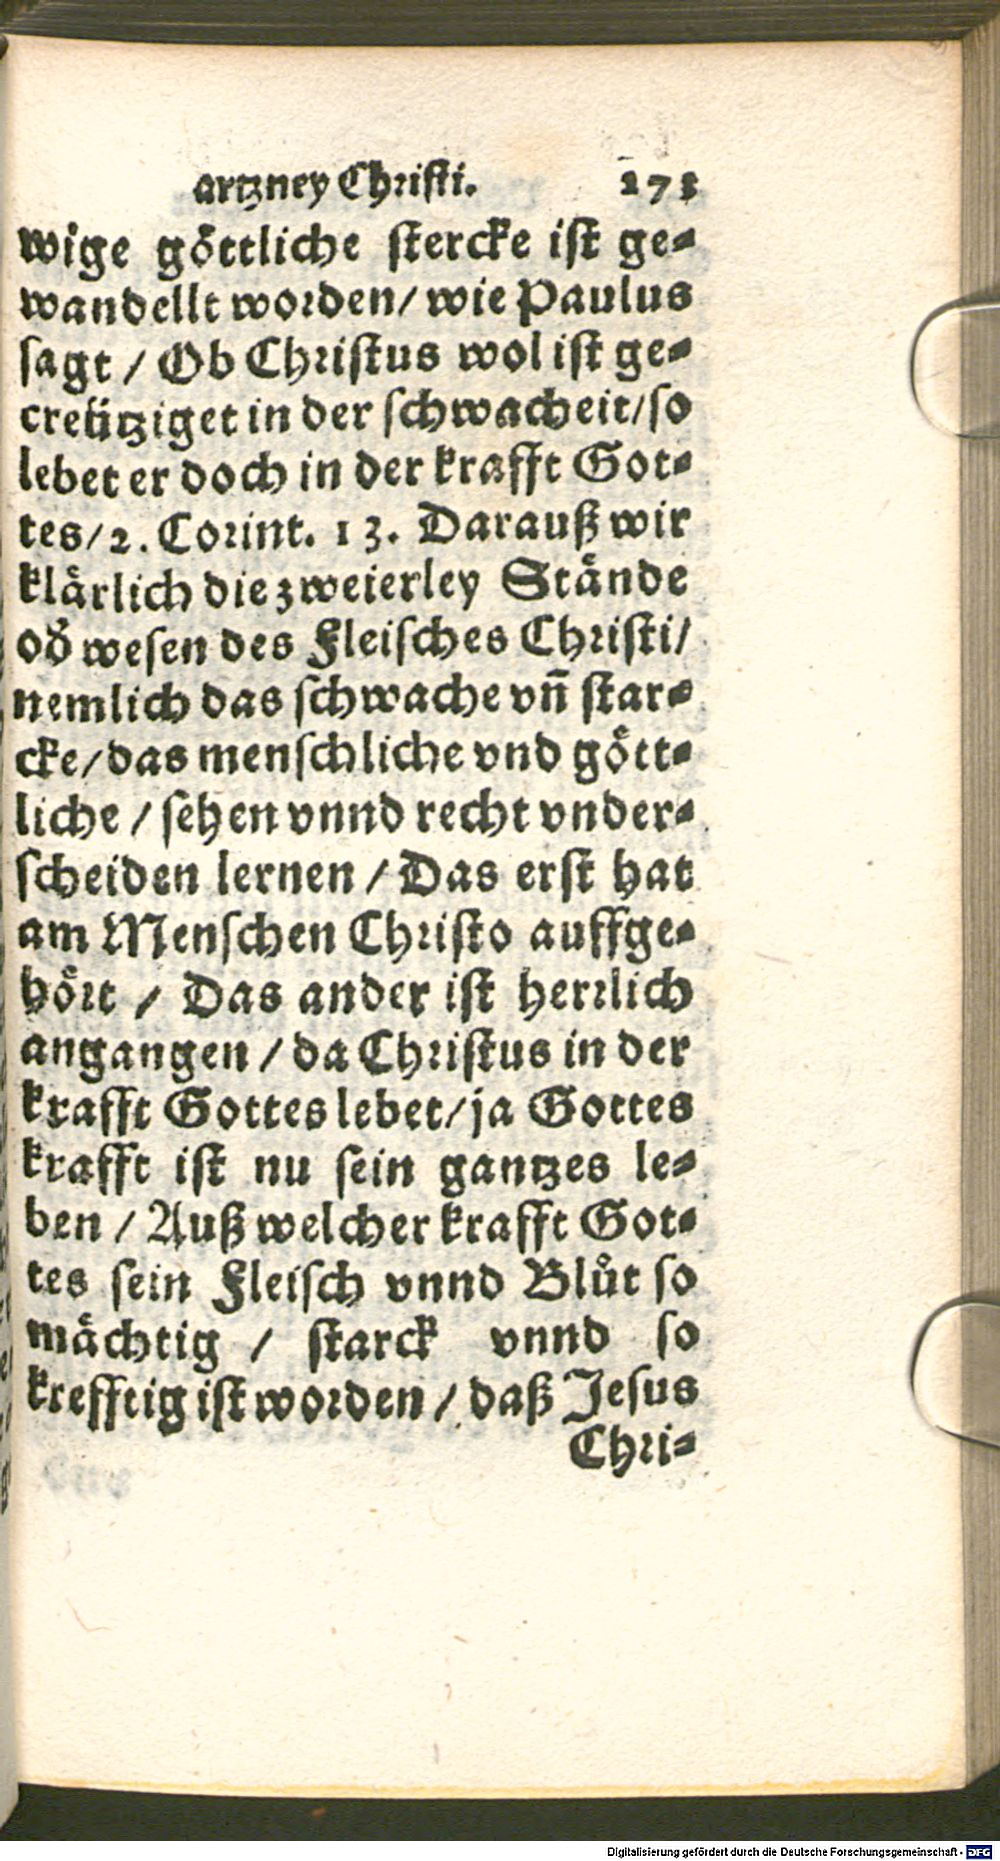 artzney Christi. 271
wige göttliche stercke ist ge⸗
wandellt worden/ wie Paulus
sagt / Ob Christus wol ist ge⸗
creützigetin der schwacheit/so
lebet er doch in der krafft Got⸗
tes/2. Corint. 13. Darauß wir
klärlich die zweierley Stände
oď wesen des Fleisches Christi/
nemlich das schwache vñ star⸗
cke/das menschliche vnd gött⸗
liche / sehen vnnd recht vnder⸗
scheiden lernen / Das erst hat
am Menschen Christo auffge⸗
hört / Das ander ist herrlich
angangen / da Christus in der
krafft Gottes lebet/ja Gottes
krafft ist nu sein gantzes le⸗
ben / Auß welcher krafft Got⸗
tes sein Fleisch vnnd Blůt so
mächtig / starck vnnd so
krefftig ist worden / daß Jesus
Chri⸗
Digitalisierung gefördert durch die Deutsche Forschungsgemeinschaft - DFG